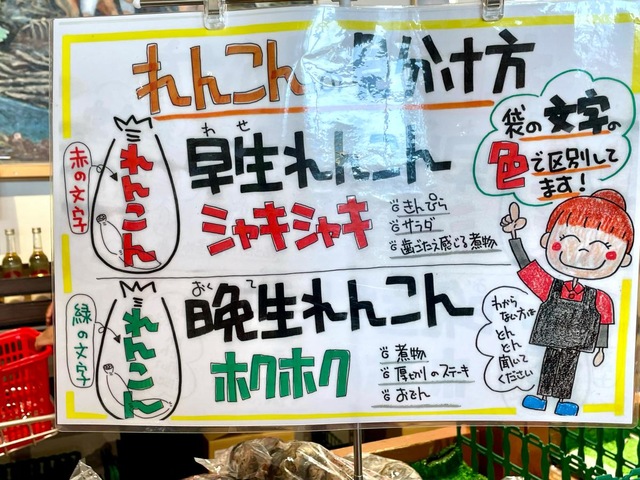 れんこんの見分け方
袋の文字の
色で区別して
ます!
赤の文字
れんこん
わせ
早生れんこん
シャキシャキ
きんぴら
サラダ
歯ごたえ感じる煮物
緑の文字
れんこん
おくて
晩生れんこん
ホクホク
煮物
厚切りのステーキ
おでん
わから
ない方は
どん
どん
聞いて
ください